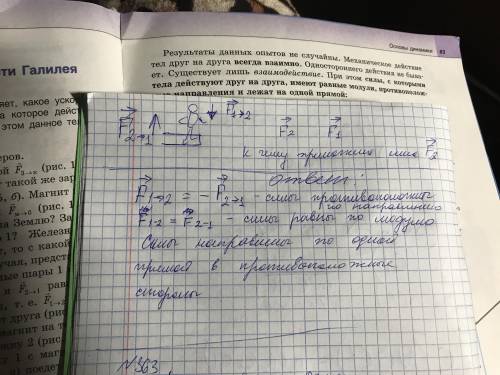 Основы динамики 83
Результаты данных опытов не случайны. Механическое действие
тел друг на друга всегда взаимно. Одностороннего действия не быва-
ет. Существует лишь взаимодействие. При этом силы, с которыми
тела действуют друг на друга, имеют равные модули, противополож-
направления и лежат на одной прямой:
ти Галилея
яет, какое уско
а которое дейст
этом данное тел
еров.
(рис. 1
такой же зар
б). Магнит
(рис.
я Землю? За
17 Желез
т, то с какой
учая, предста
ные шары 1
и F₂→₁ рав
а, т. е. F₁→
т друга (рис
магнит на т
нику 2 (рис.
1 с магн
F₂→₁ F₁→₂
F₂ F₁
к чему приложена сила F₂
ответ:
F₁→₂ = - F₂→₁ - силы противоположны
по направлению
F₁-₂ = F₂-₁ - силы равны по модулю
Силы направлены по одной
прямой в противоположные
стороны
№363.